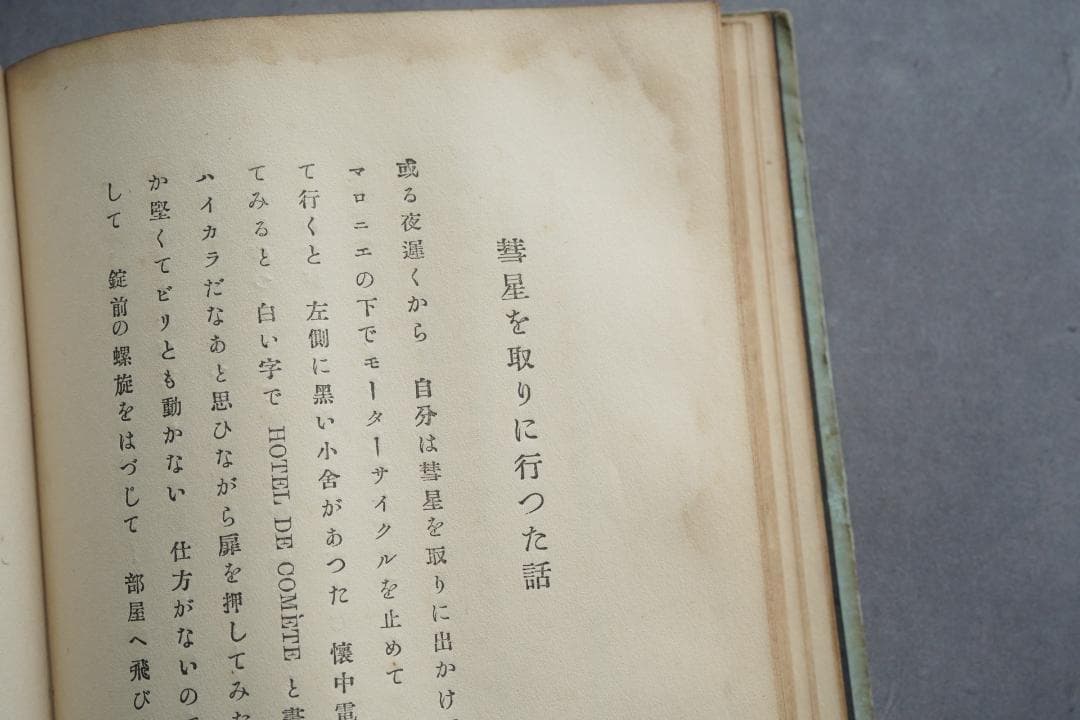 彗星を取りに行つた話
或る夜遲くから　自分は彗星を取りに出かけ
マロニエの下でモーターサイクルを止めて
て行くと　左側に黑い小舍があつた　懷中電
てみると　白い字で HOTEL DE COMÈTE と書
ハイカラだなあと思ひながら扉を押してみた
か堅くてビリとも動かない　仕方がないので
して　錠前の螺旋をはづして　部屋へ飛び